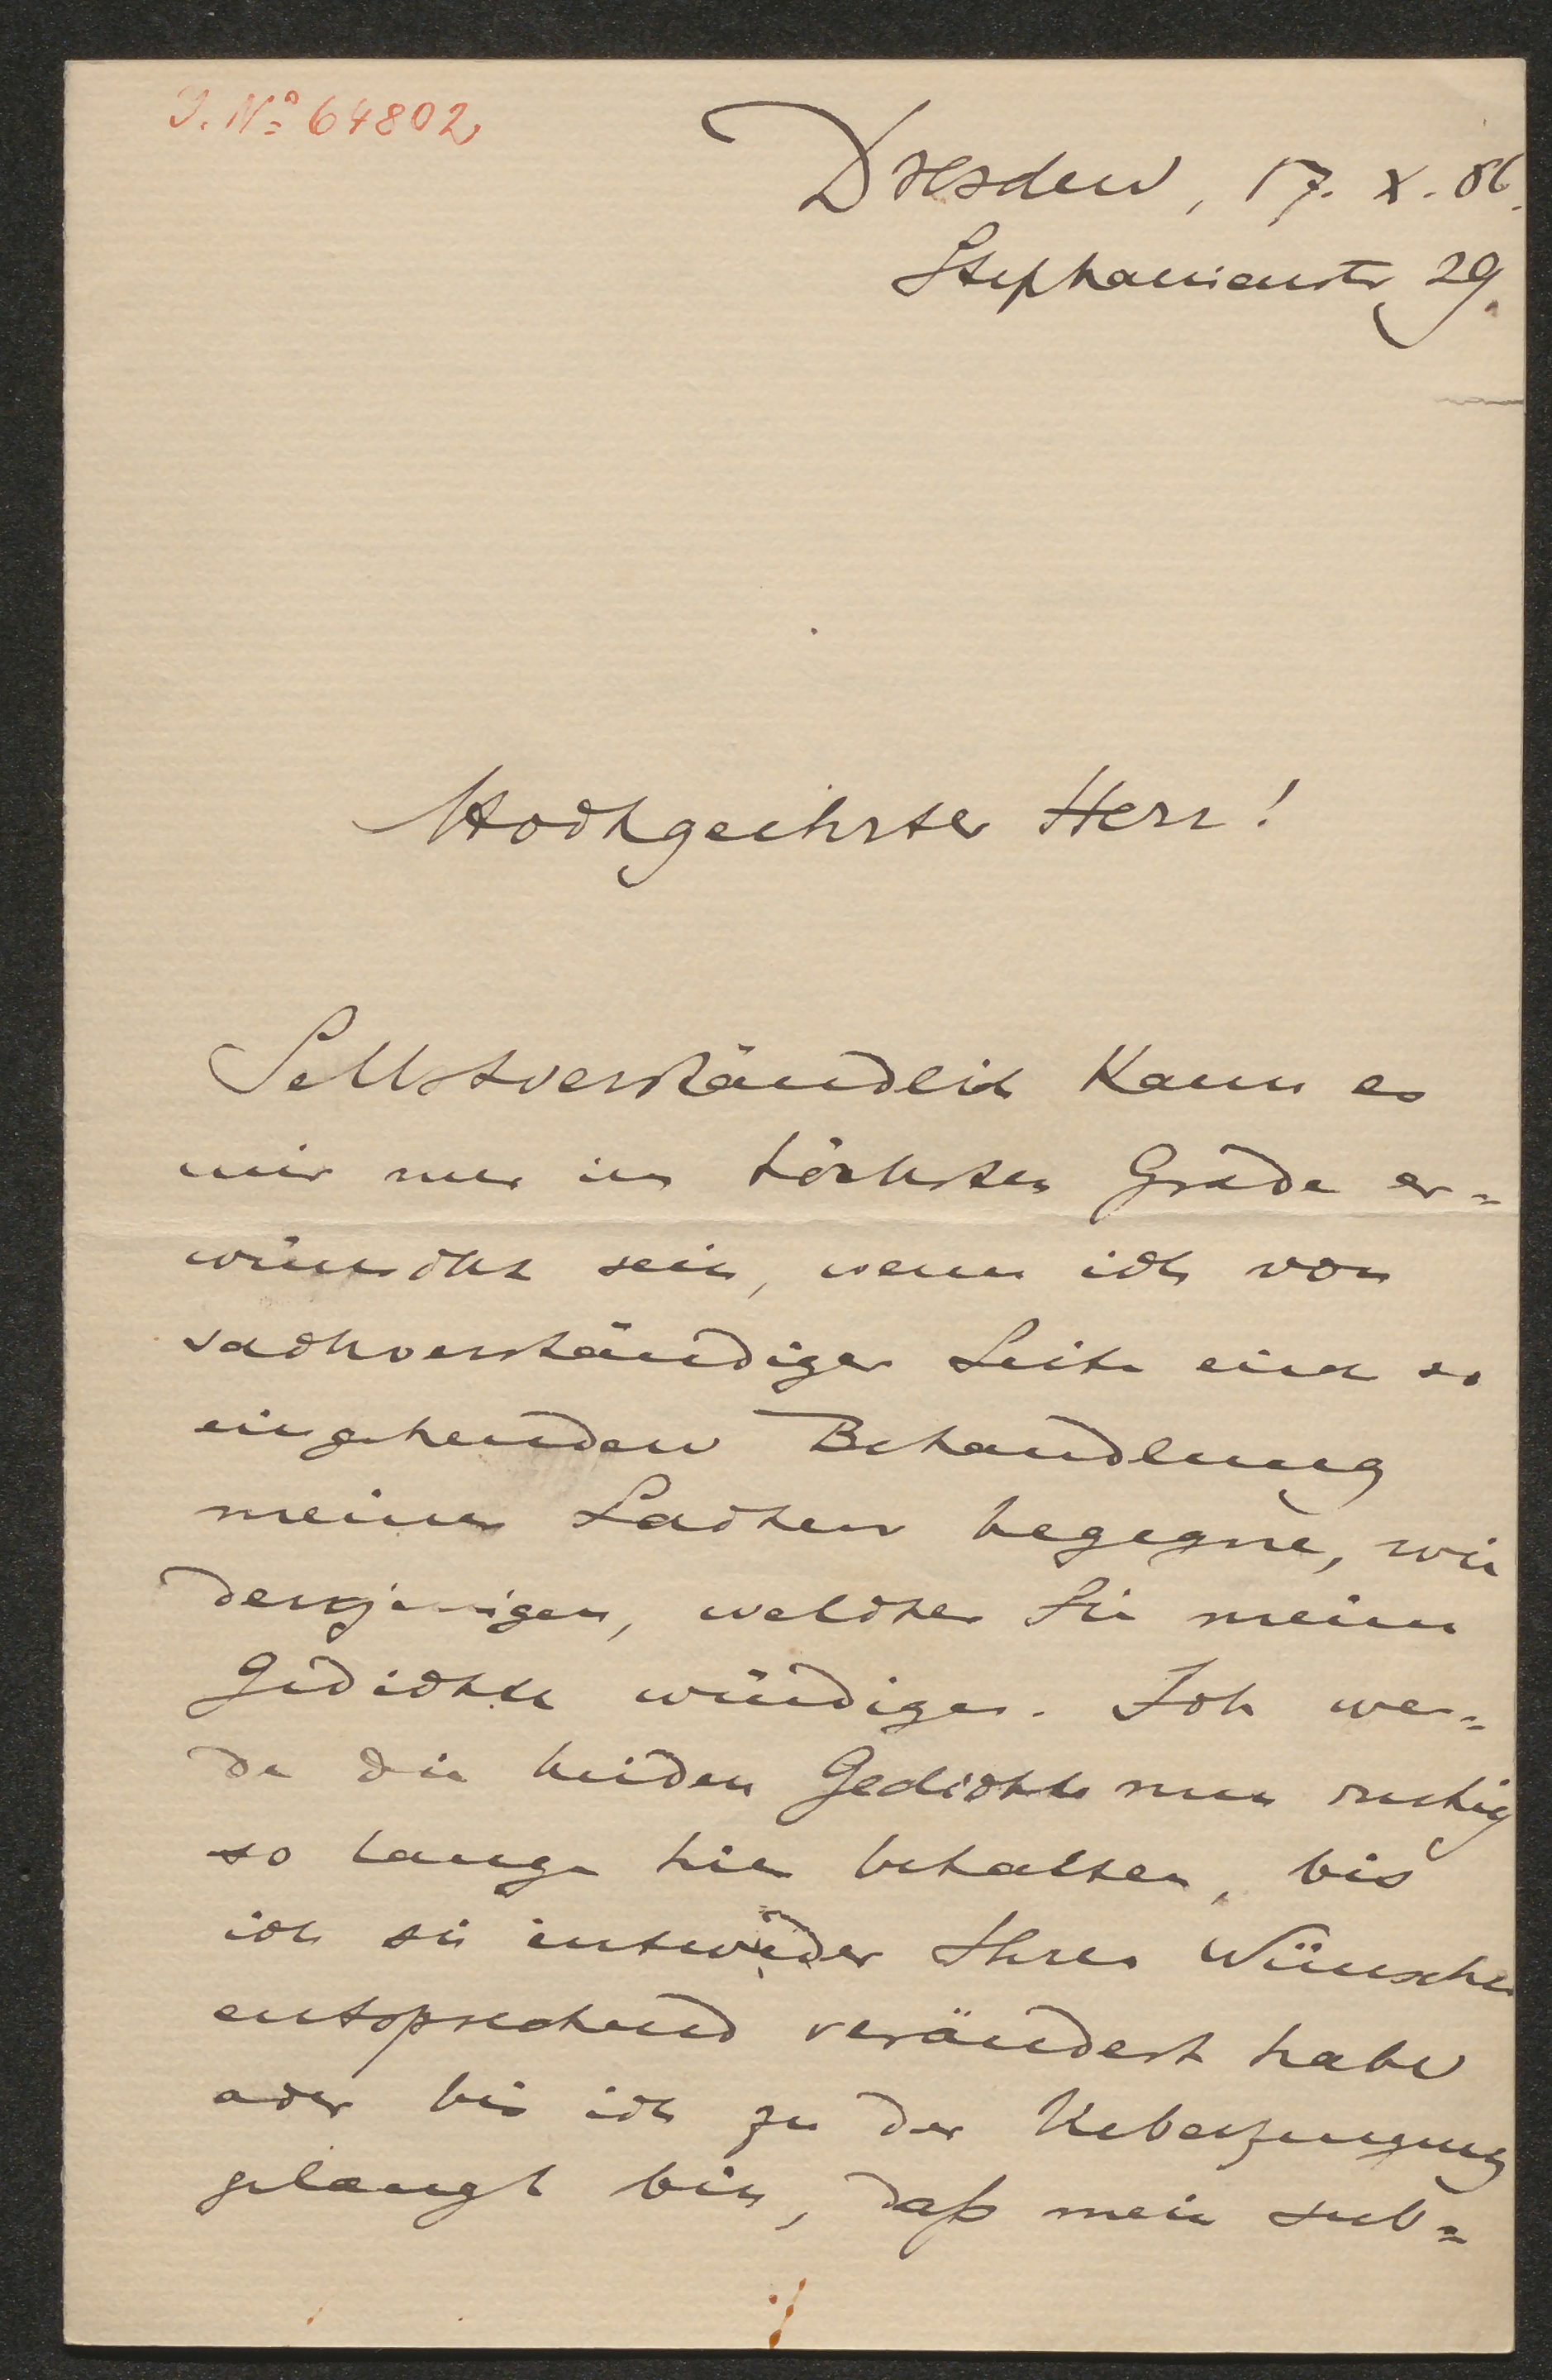 J. No 64802
Dresden, 17. X. 86.
Stephanienstr 29.
Hochgeehrter Herr!
Selbstverständlich kann es
mir nur im höchsten Grade er=
wünscht sein, wenn ich von
sachverständiger Seite einer so
eingehenden Behandlung
meiner Sachen begegne, wie
derjenigen, welcher Sie meine
Gedichte würdigen. Ich wer=
de die beiden Gedichte nun ruhig
so lange hier behalten, bis
ich sie entweder Ihren Wünschen
entsprechend verändert habe
oder bis ich zu der Ueberzeugung
gelangt bin, daß mein sub=